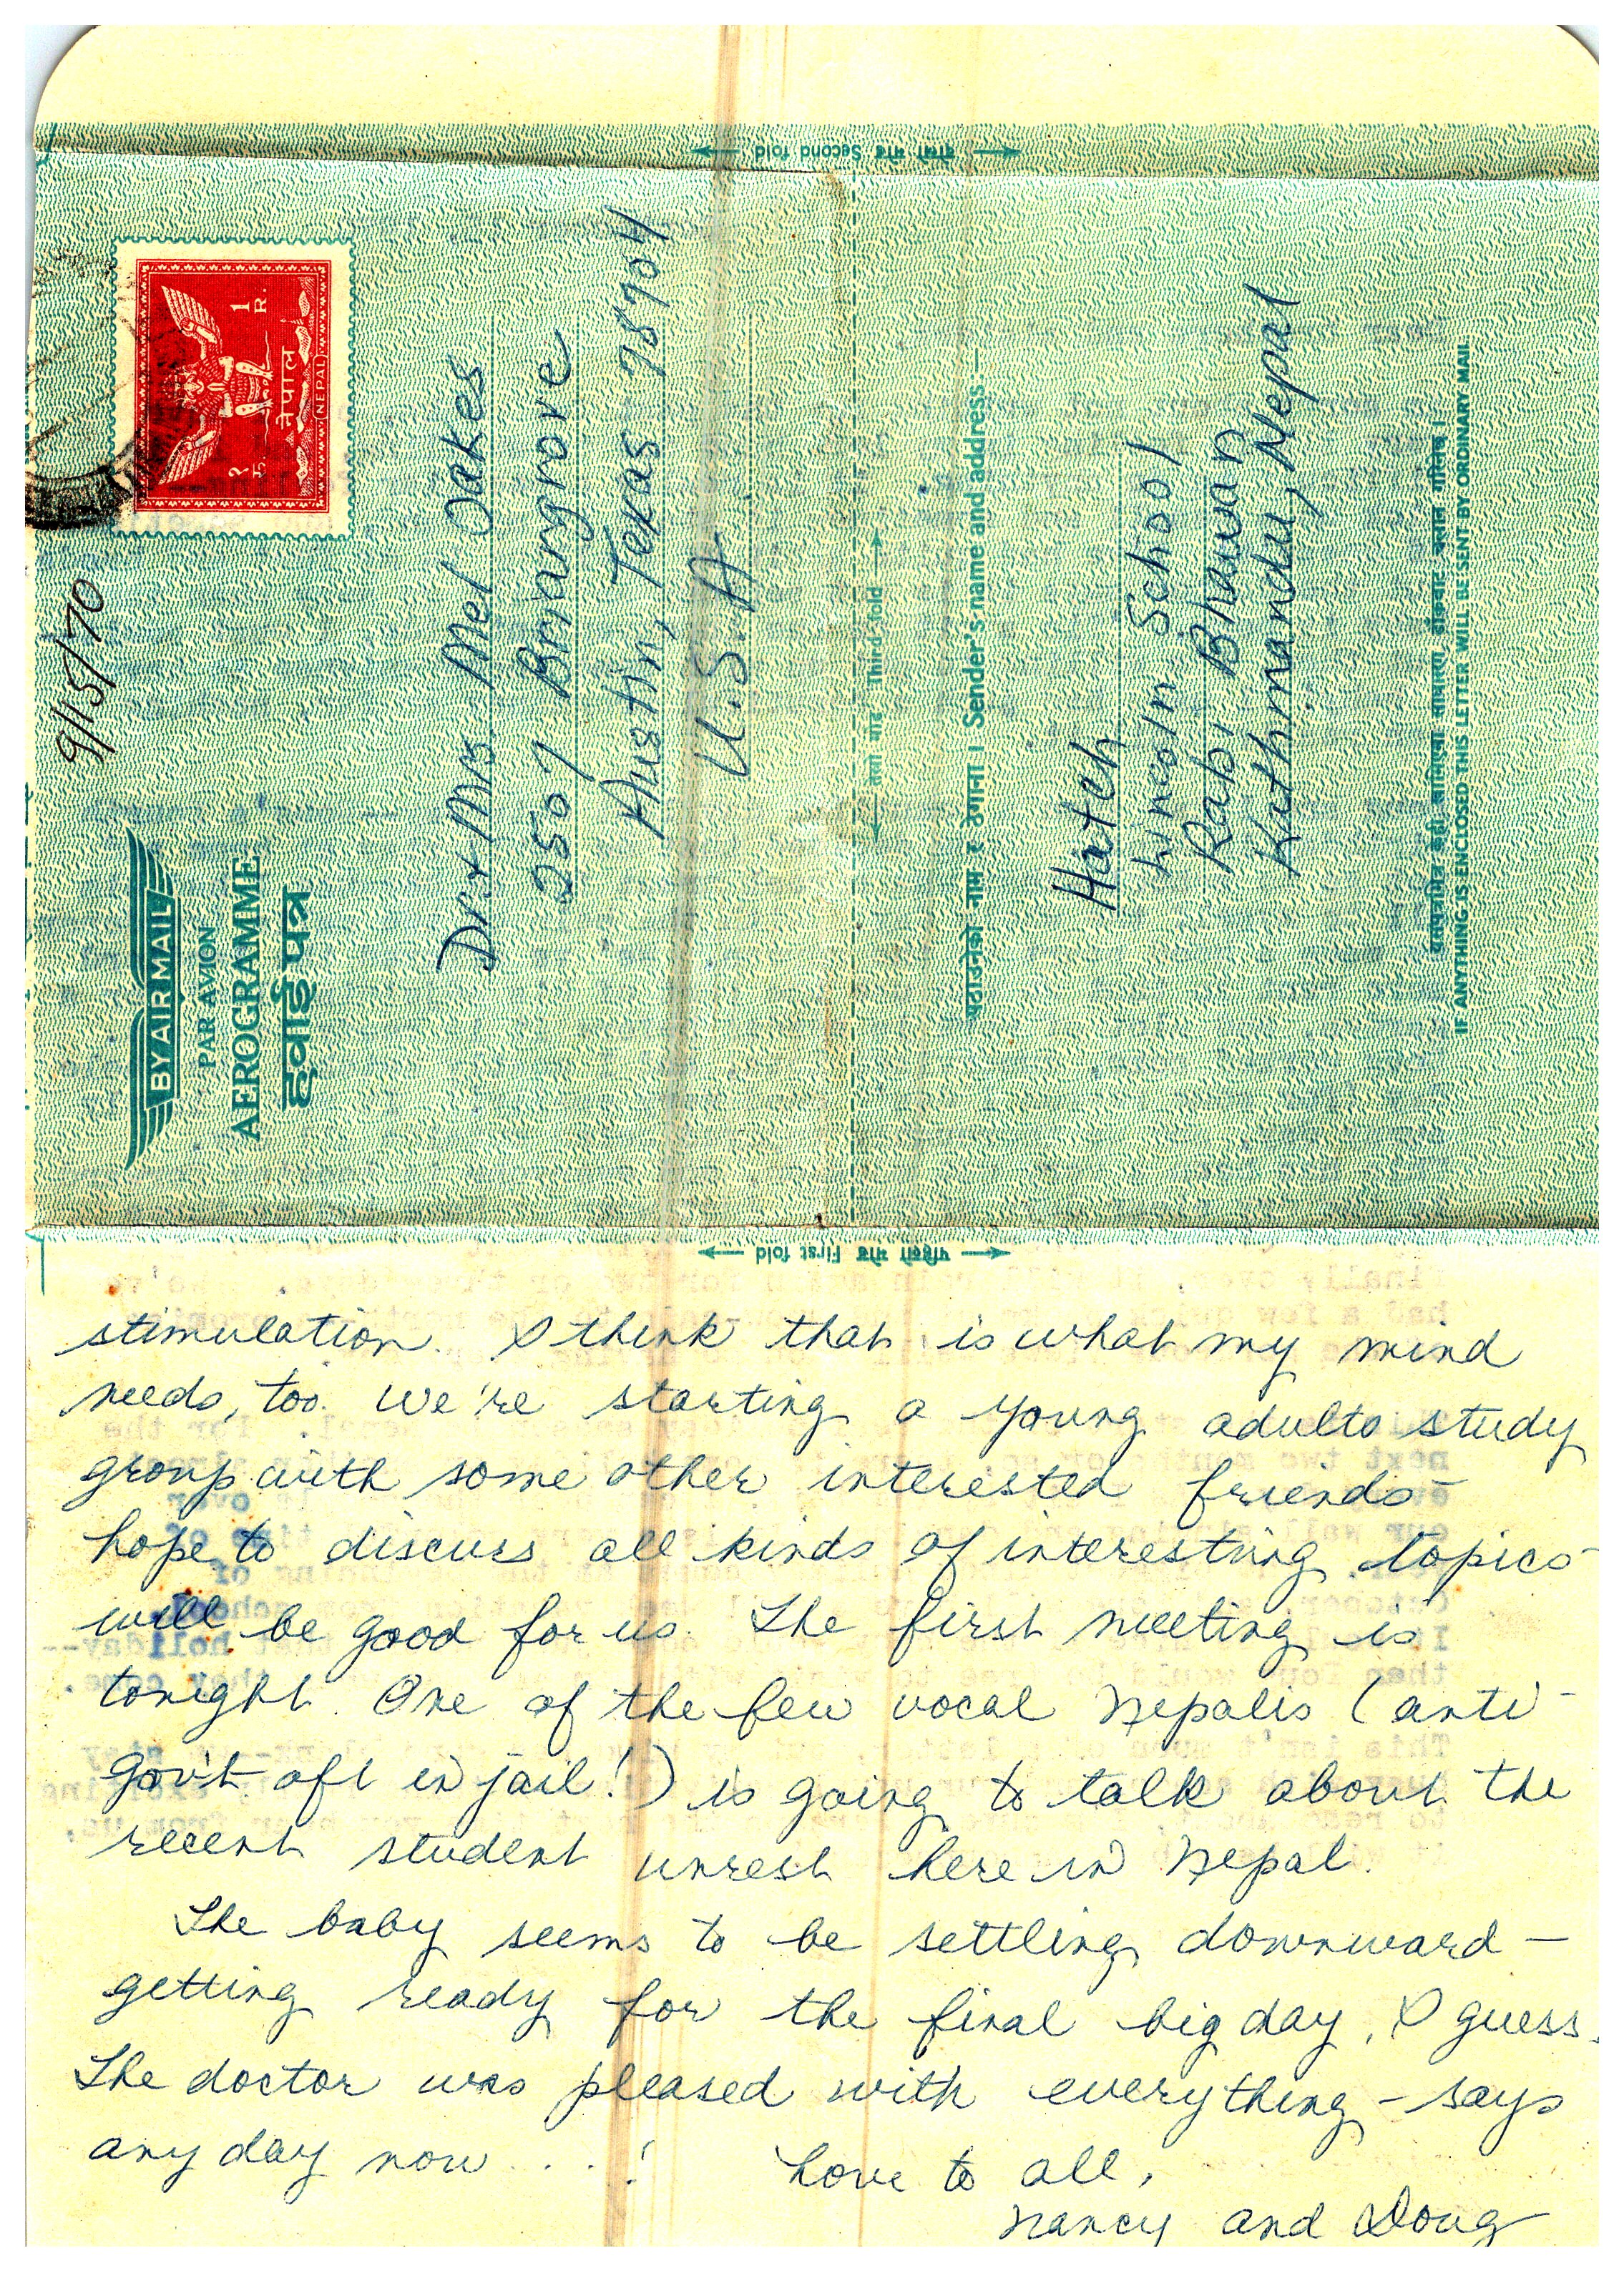 दोस्रो मोड Second fold
9/15/70
BY AIR MAIL
PAR AVION
AEROGRAMME
हवाई पत्र
१ रु.
1 R.
नेपाल
(NEPAL)
Dr. + Mrs Mel Oakes
2507 Briargrove
Austin, Texas 78704
U.S.A.
तेस्रो मोड Third fold
पठाउनेको नाम र ठेगाना । Sender's name and address:—
Hatch
Lincoln School
Rabi Bhawan
Kathmandu, Nepal
IF ANYTHING IS ENCLOSED THIS LETTER WILL BE SENT BY ORDINARY MAIL
पहिलो मोड First fold
stimulation. I think that is what my mind
needs, too. We're starting a young adults study
group with some other interested friends -
hope to discuss all kinds of interesting topics -
will be good for us. The first meeting is
tonight. One of the few vocal Nepalis (anti-
gov't - oft in jail!) is going to talk about the
recent student unrest here in Nepal.
The baby seems to be settling downward -
getting ready for the final big day, I guess.
The doctor was pleased with everything - says
any day now . . . !
Love to all,
Nancy and Doug